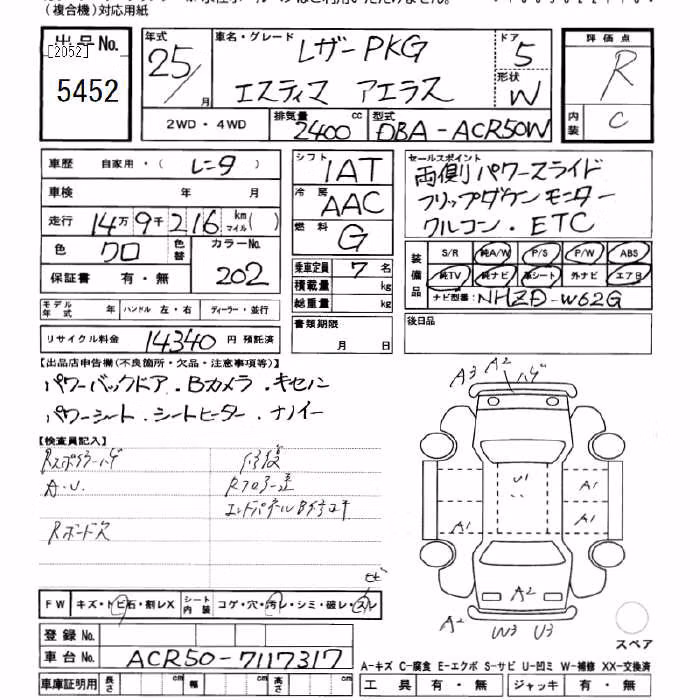 (複合機)対応用紙
出品No.
[2052]
5452
年式 25/ 月
車名・グレード レザーPKG
エスティマ アエラス
ドア 5
形状 W
評価点 R
内装 C
2WD・4WD
排気量 2400 cc
型式 DBA-ACR50W
車歴 自家用・( レニタ )
車検 年 月
走行 14万9千216 km マイル( )
色 クロ 色替 カラーNo. 202
保証書 有・無
シフト IAT
冷房 AAC
燃料 G
乗車定員 7名
積載量 kg
総重量 kg
セールスポイント
両側パワースライド
フリップダウンモニター
クルコン.ETC
装備品 S/R 純A/W P/S P/W ABS
純TV 純ナビ 革シート 外ナビ エアB
ナビ型番: NHZD-W62G
モデル年式 年 ハンドル 左・右 ディーラー・並行
リサイクル料金 14340 円 預託済
書類期限 月 日
後日品
【出品店申告欄(不良箇所・欠品・注意事項等)】
パワーバックドア.Bカメラ.キセノン
パワーシート.シートヒーター.ナノイー
【検査員記入】
Rスポイラーハゲ 修復
A.U. Rフロアー歪
エンドパネルB修コキ
Rボード欠
A3 A2 ハゲ
U1
A1
A1 A1
A2
A2 W3 U3
スペア
FW キズ・トビ石・割レX シート内装 コゲ・穴・汚レ・シミ・破レ・スレ
登録No.
車台No. ACR50-7117317
A-キズ C-腐食 E-エクボ S-サビ U-凹ミ W-補修 XX-交換済
車庫証明用 長さ cm 幅 cm 高さ cm
工具 有・無 ジャッキ 有・無